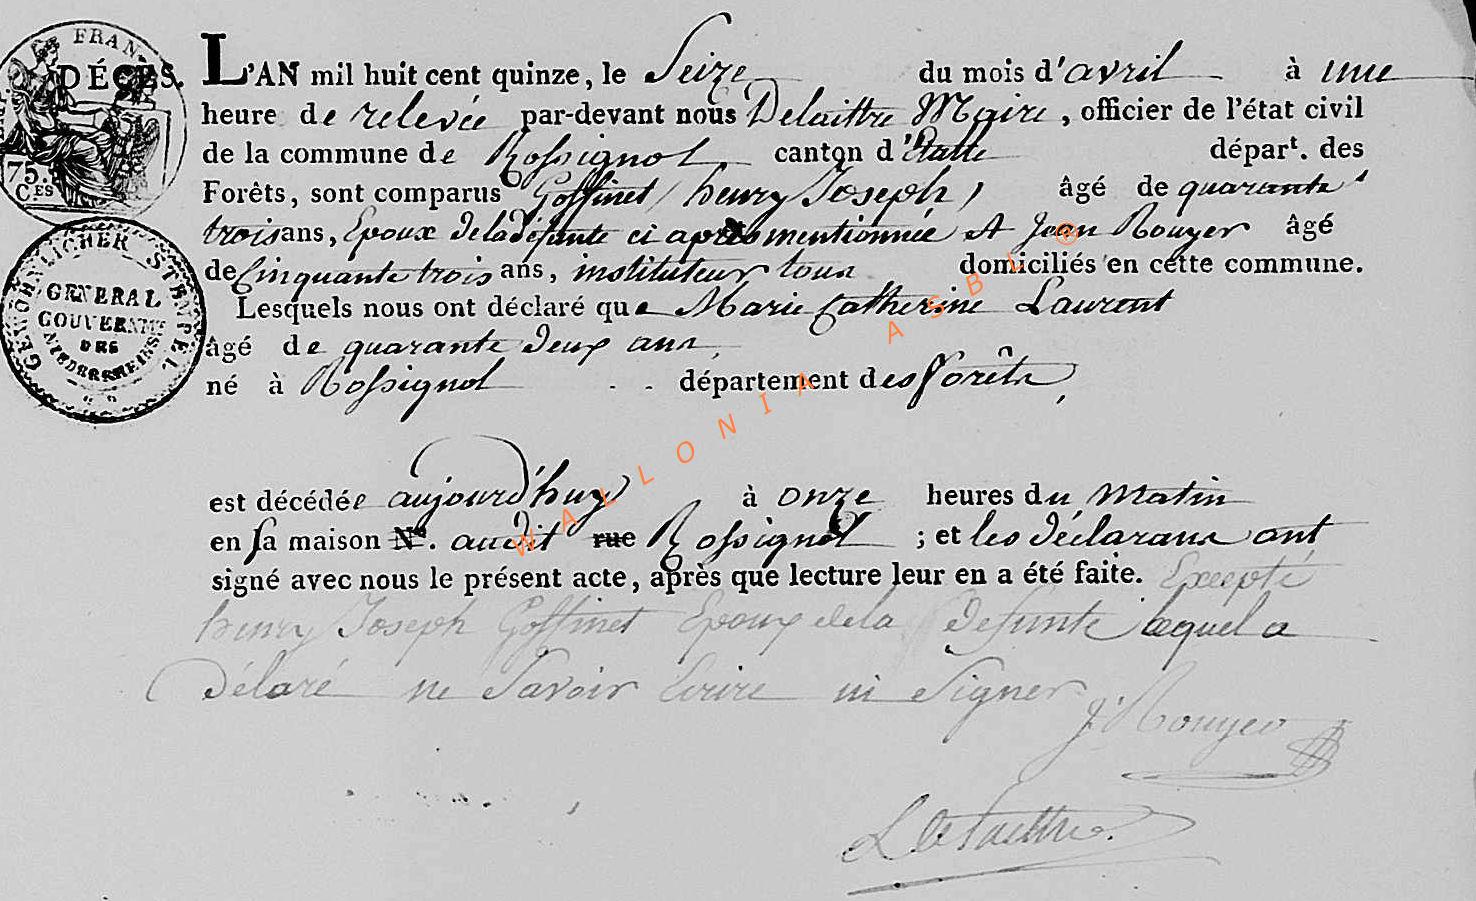 FRAN
75.
C.ES
DÉCES. L'AN mil huit cent quinze, le Seize du mois d'avril à une
heure de relevée par-devant nous Delaittre Maire, officier de l'état civil
de la commune de Rossignol canton d'Etalle départ. des
Forêts, sont comparus Goffinet henry Joseph, âgé de quarante
trois ans, Epoux de la défunte ci après mentionnée et Jean Rouyer âgé
de Cinquante trois ans, instituteur tous domiciliés en cette commune.
Lesquels nous ont déclaré que Marie Catherine Laurent
âgé de quarante deux ans,
né à Rossignol département des forêts,
est décédée aujourd'huy à onze heures du Matin
en sa maison N°. audit rue Rossignol ; et les déclarans ont
signé avec nous le présent acte, après que lecture leur en a été faite. Excepté
henry Joseph Goffinet Epoux de la defunte lequel a
Délaré ne Savoir Ecrire ni Signer
J Rouyer
L Delaittre.
GEWOHNLICHER STEMPEL
GENERAL
GOUVERNMT
DES
NIEDERRHEINS
WALLONIA ASBL ®